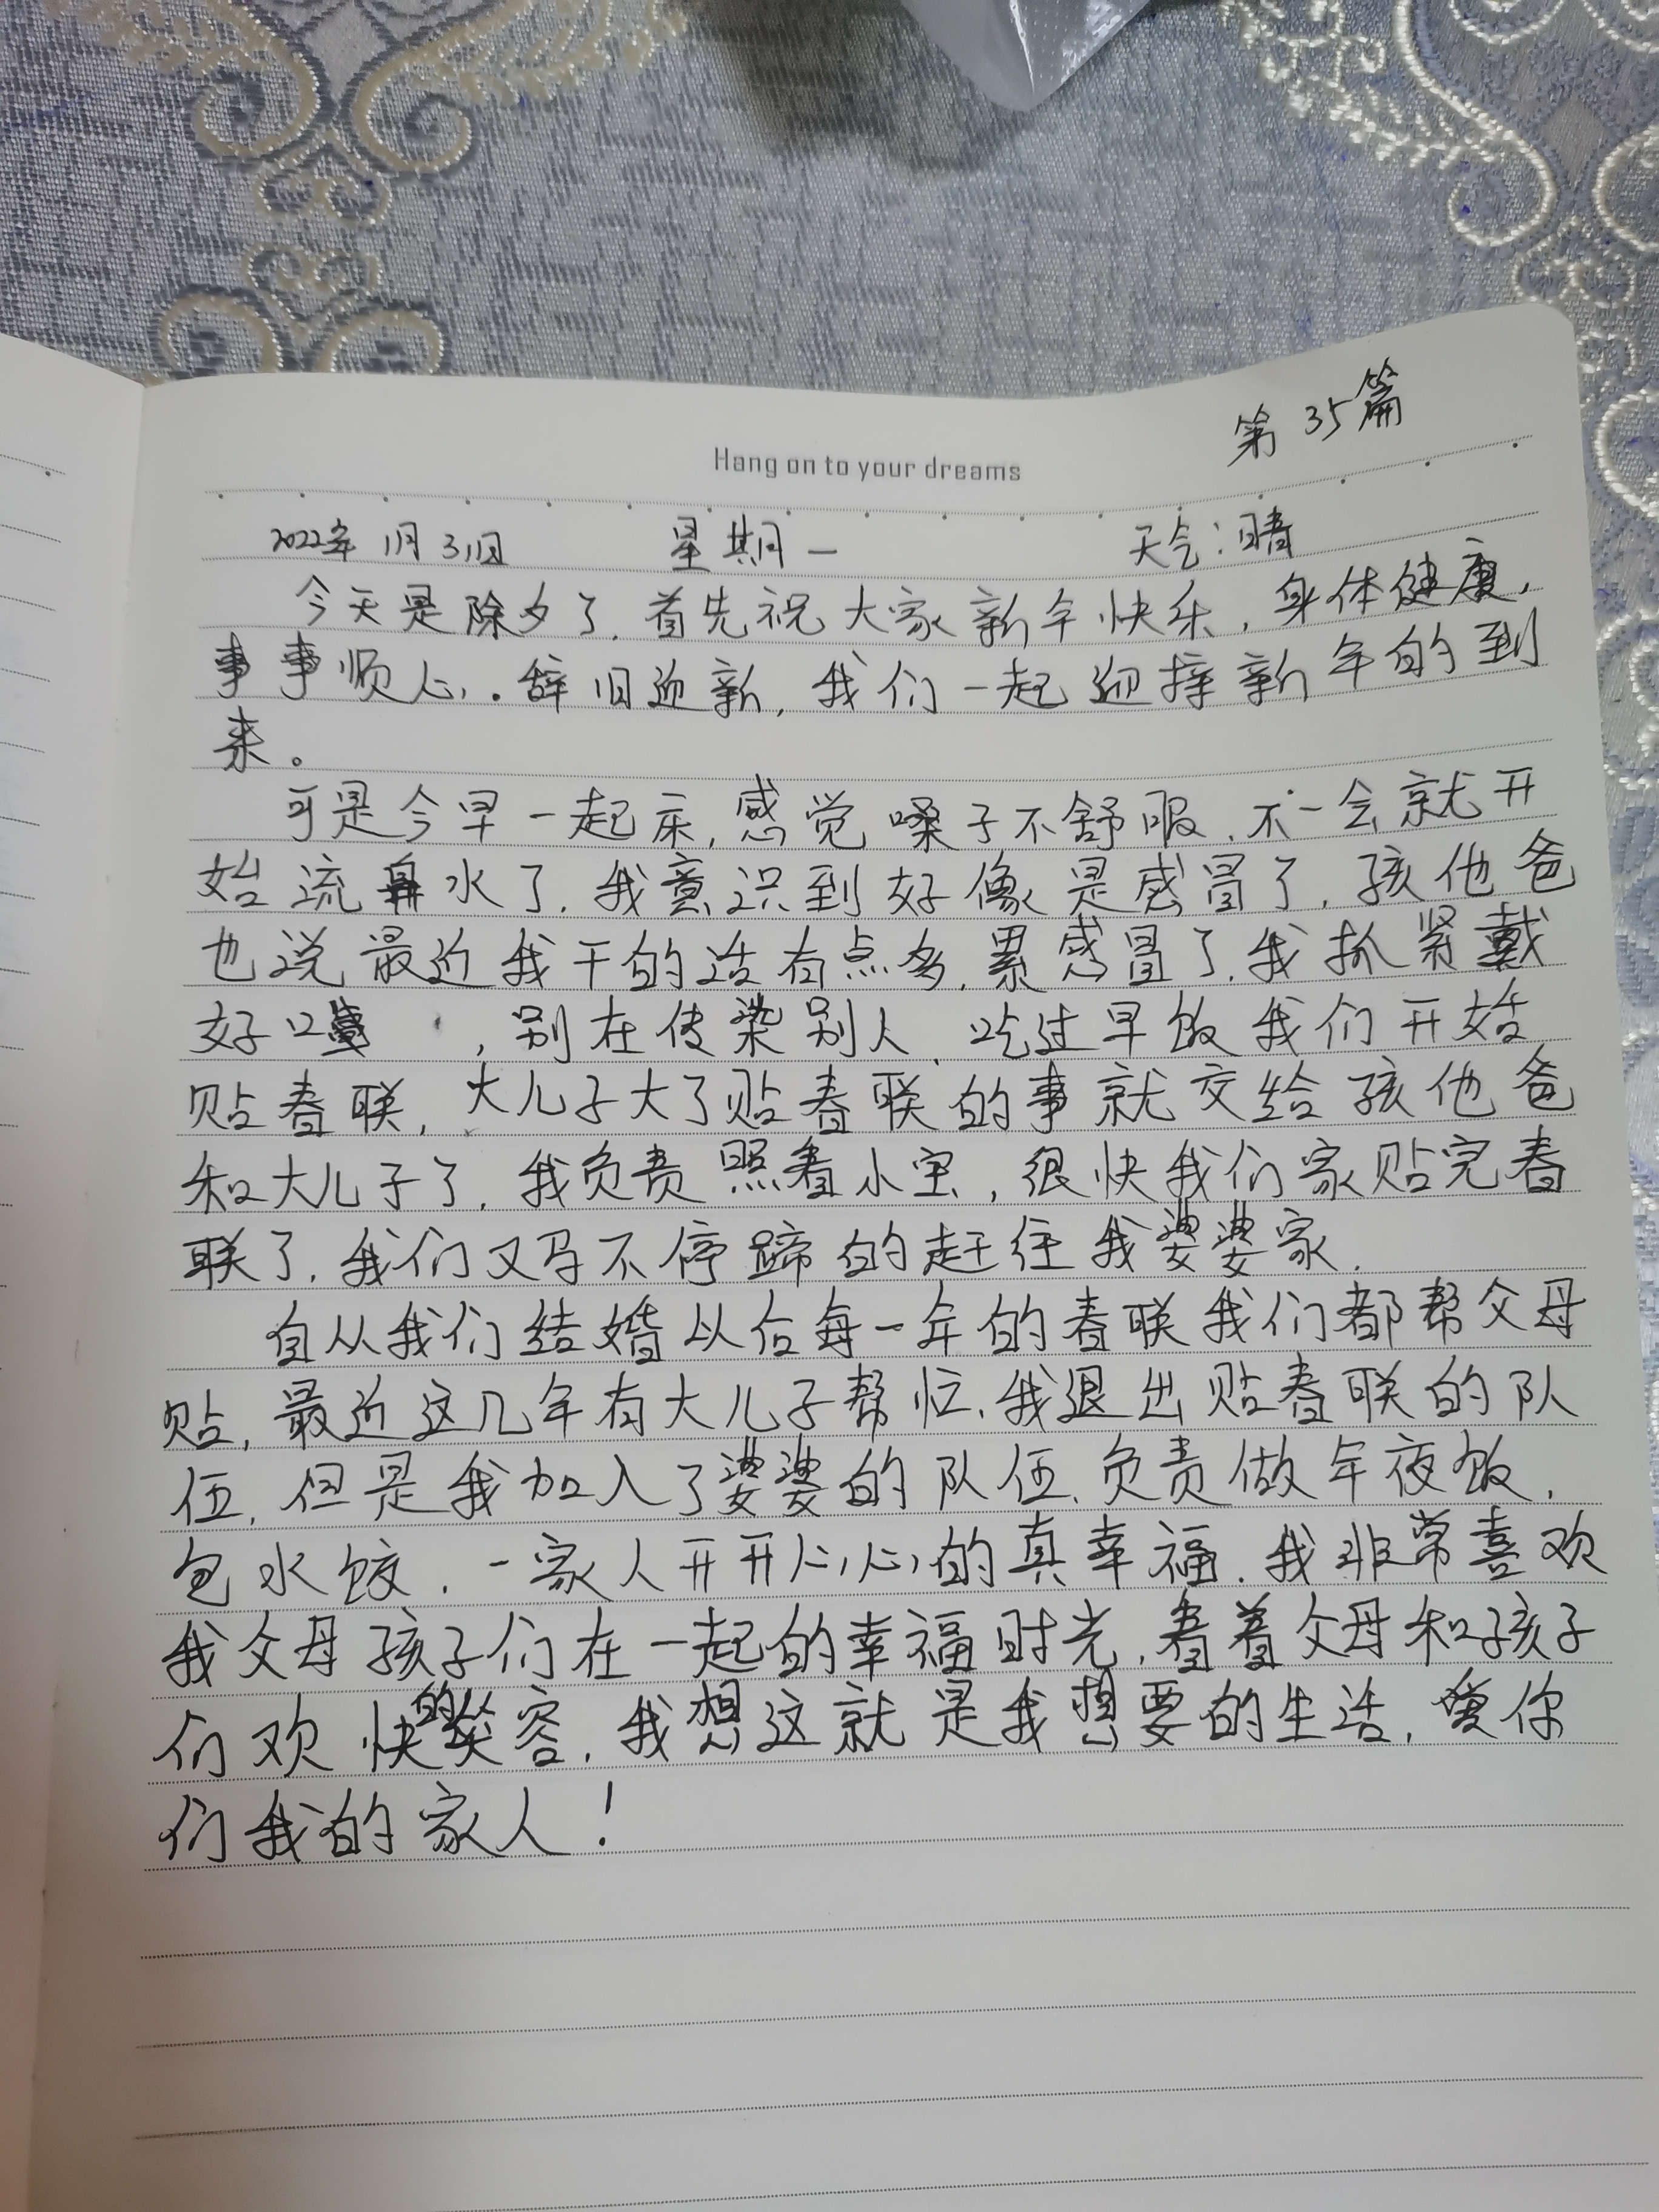 第35篇
Hang on to your dreams
2022年1月31日 星期一 天气:晴
今天是除夕了,首先祝大家新年快乐,身体健康,
事事顺心。辞旧迎新,我们一起迎接新年的到
来。
可是今早一起床,感觉嗓子不舒服,不一会就开
始流鼻水了,我意识到好像是感冒了,孩他爸
也说最近我干的活有点多,累感冒了,我抓紧戴
好口 ,别在传染别人,吃过早饭我们开始
贴春联,大儿子大了贴春联的事就交给孩他爸
和大儿子了,我负责照看小宝,很快我们家贴完春
联了,我们又马不停蹄的赶往我婆婆家.
自从我们结婚以后每一年的春联我们都帮父母
贴,最近这几年有大儿子帮忙,我退出贴春联的队
伍,但是我加入了婆婆的队伍,负责做年夜饭,
包水饺,一家人开开心心的真幸福,我非常喜欢
我父母孩子们在一起的幸福时光,看着父母和孩子
们欢快的笑容,我想这就是我想要的生活,爱你
们我的家人!